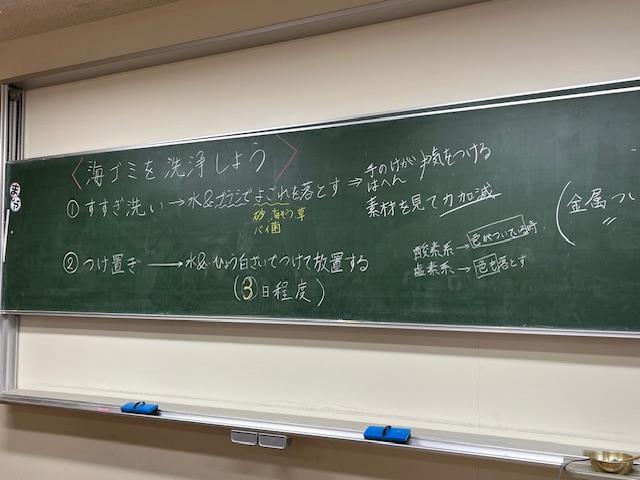 〈海ゴミを洗浄しよう〉
① すすぎ洗い → 水&ブラシでよごれを落とす ⇒ 手のけが 気をつける
はへん
素材を見て力加減
砂 海そう 草
バイ菌
② つけ置き → 水& ひょう白ざいでつけて放置する
(3日程度)
酸素系 → 色がついている時
塩素系 → 色も落とす
(金属つい
〃
まち